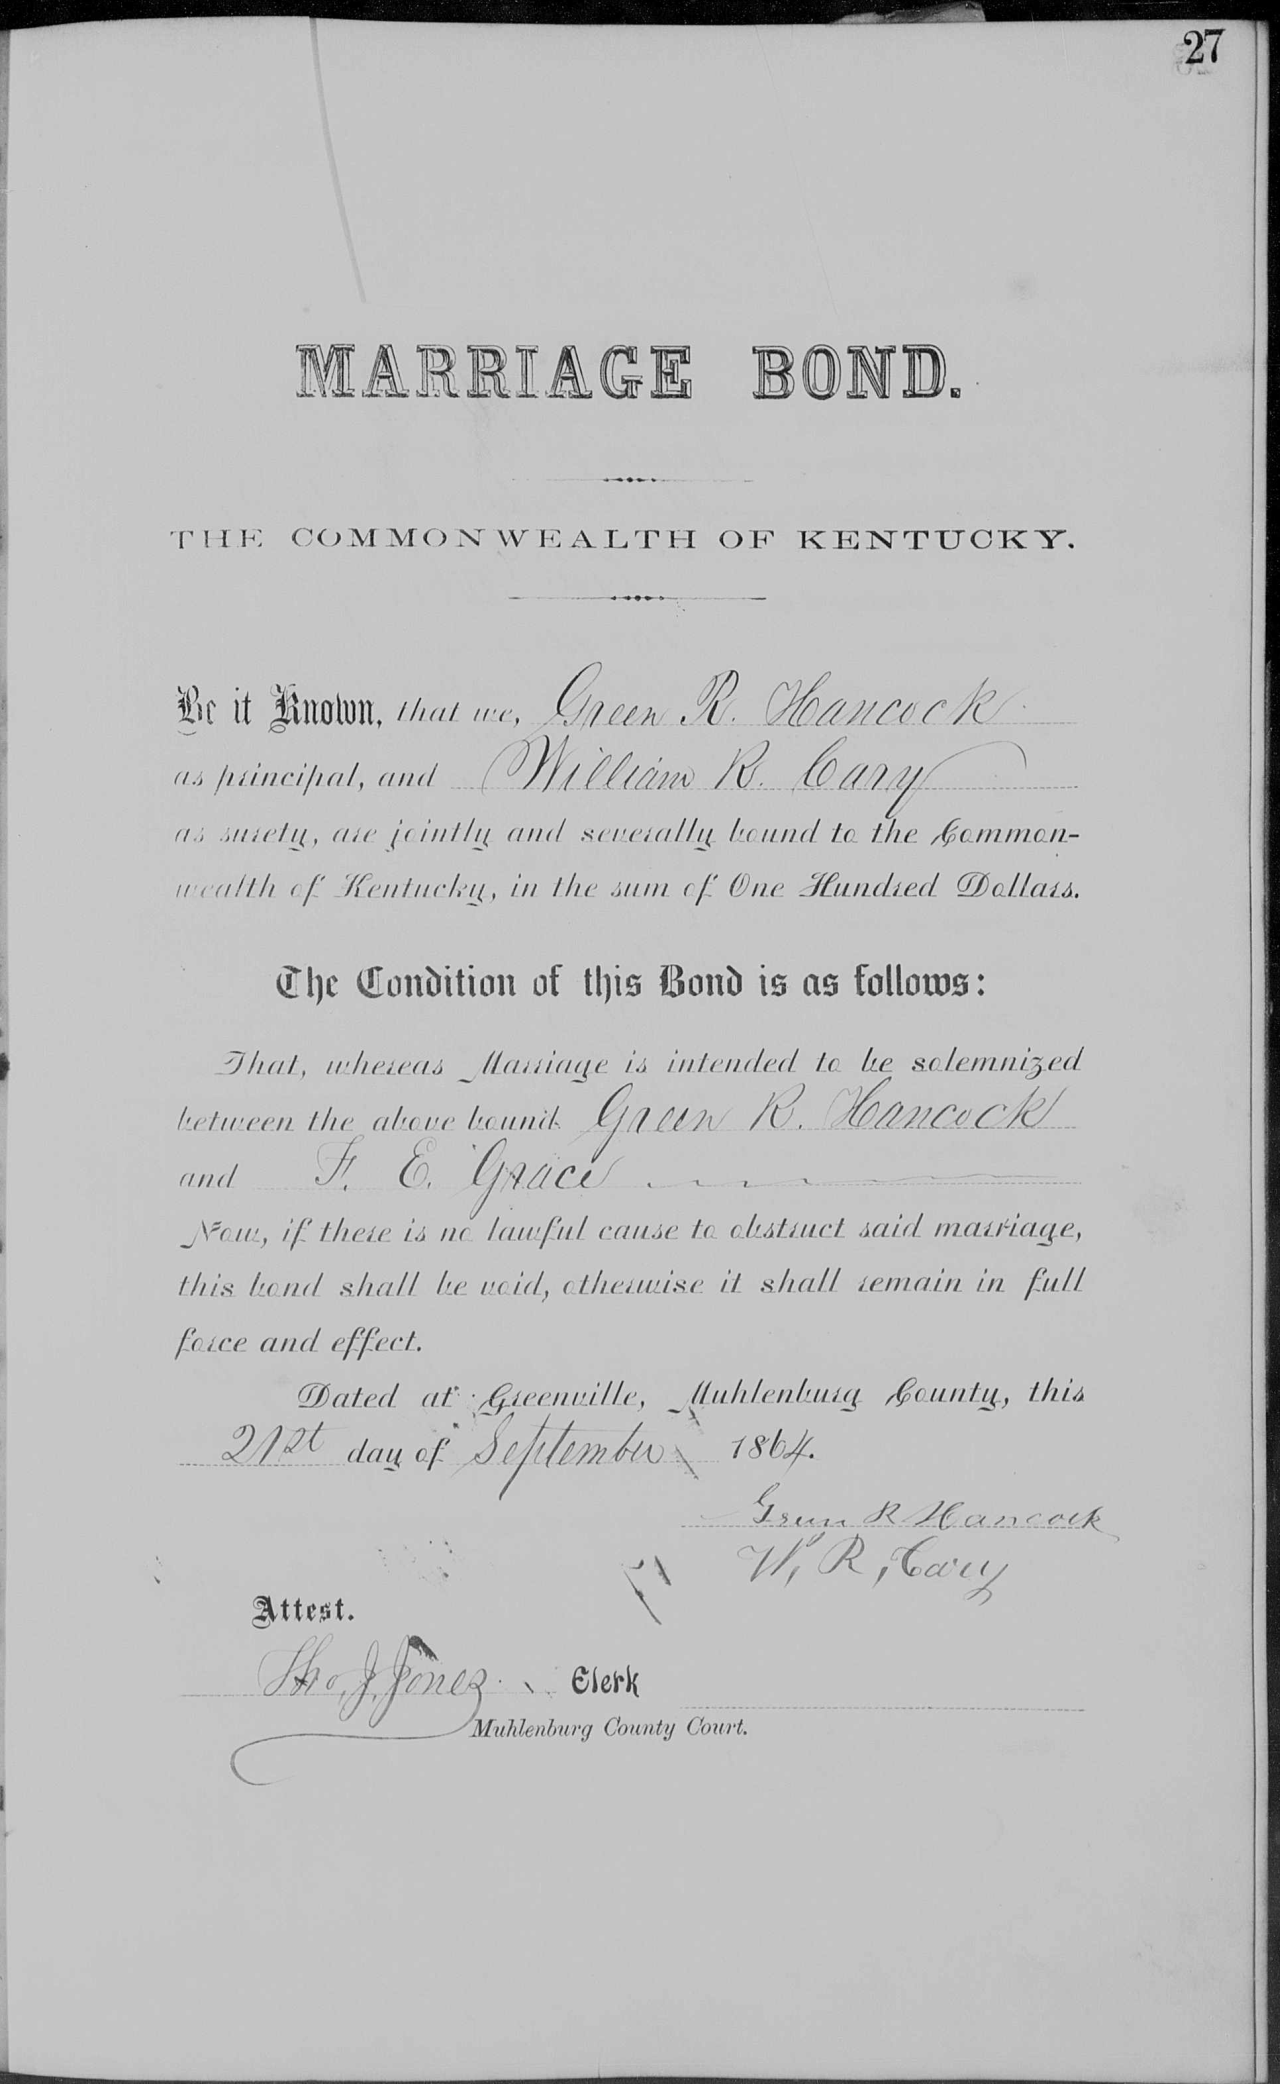 27
MARRIAGE BOND.
THE COMMONWEALTH OF KENTUCKY.
Be it Known, that we, Green R. Hancock
as principal, and William R. Cary
as surety, are jointly and severally bound to the Common-
wealth of Kentucky, in the sum of One Hundred Dollars.
The Condition of this Bond is as follows:
That, whereas Marriage is intended to be solemnized
between the above bound Green R. Hancock
and F. E. Grace
Now, if there is no lawful cause to obstruct said marriage,
this bond shall be void, otherwise it shall remain in full
force and effect.
Dated at Greenville, Muhlenburg County, this
21st day of September 1864.
Green R Hancock
W, R, Cary
Attest.
Tho. J. Jones Clerk
Muhlenburg County Court.